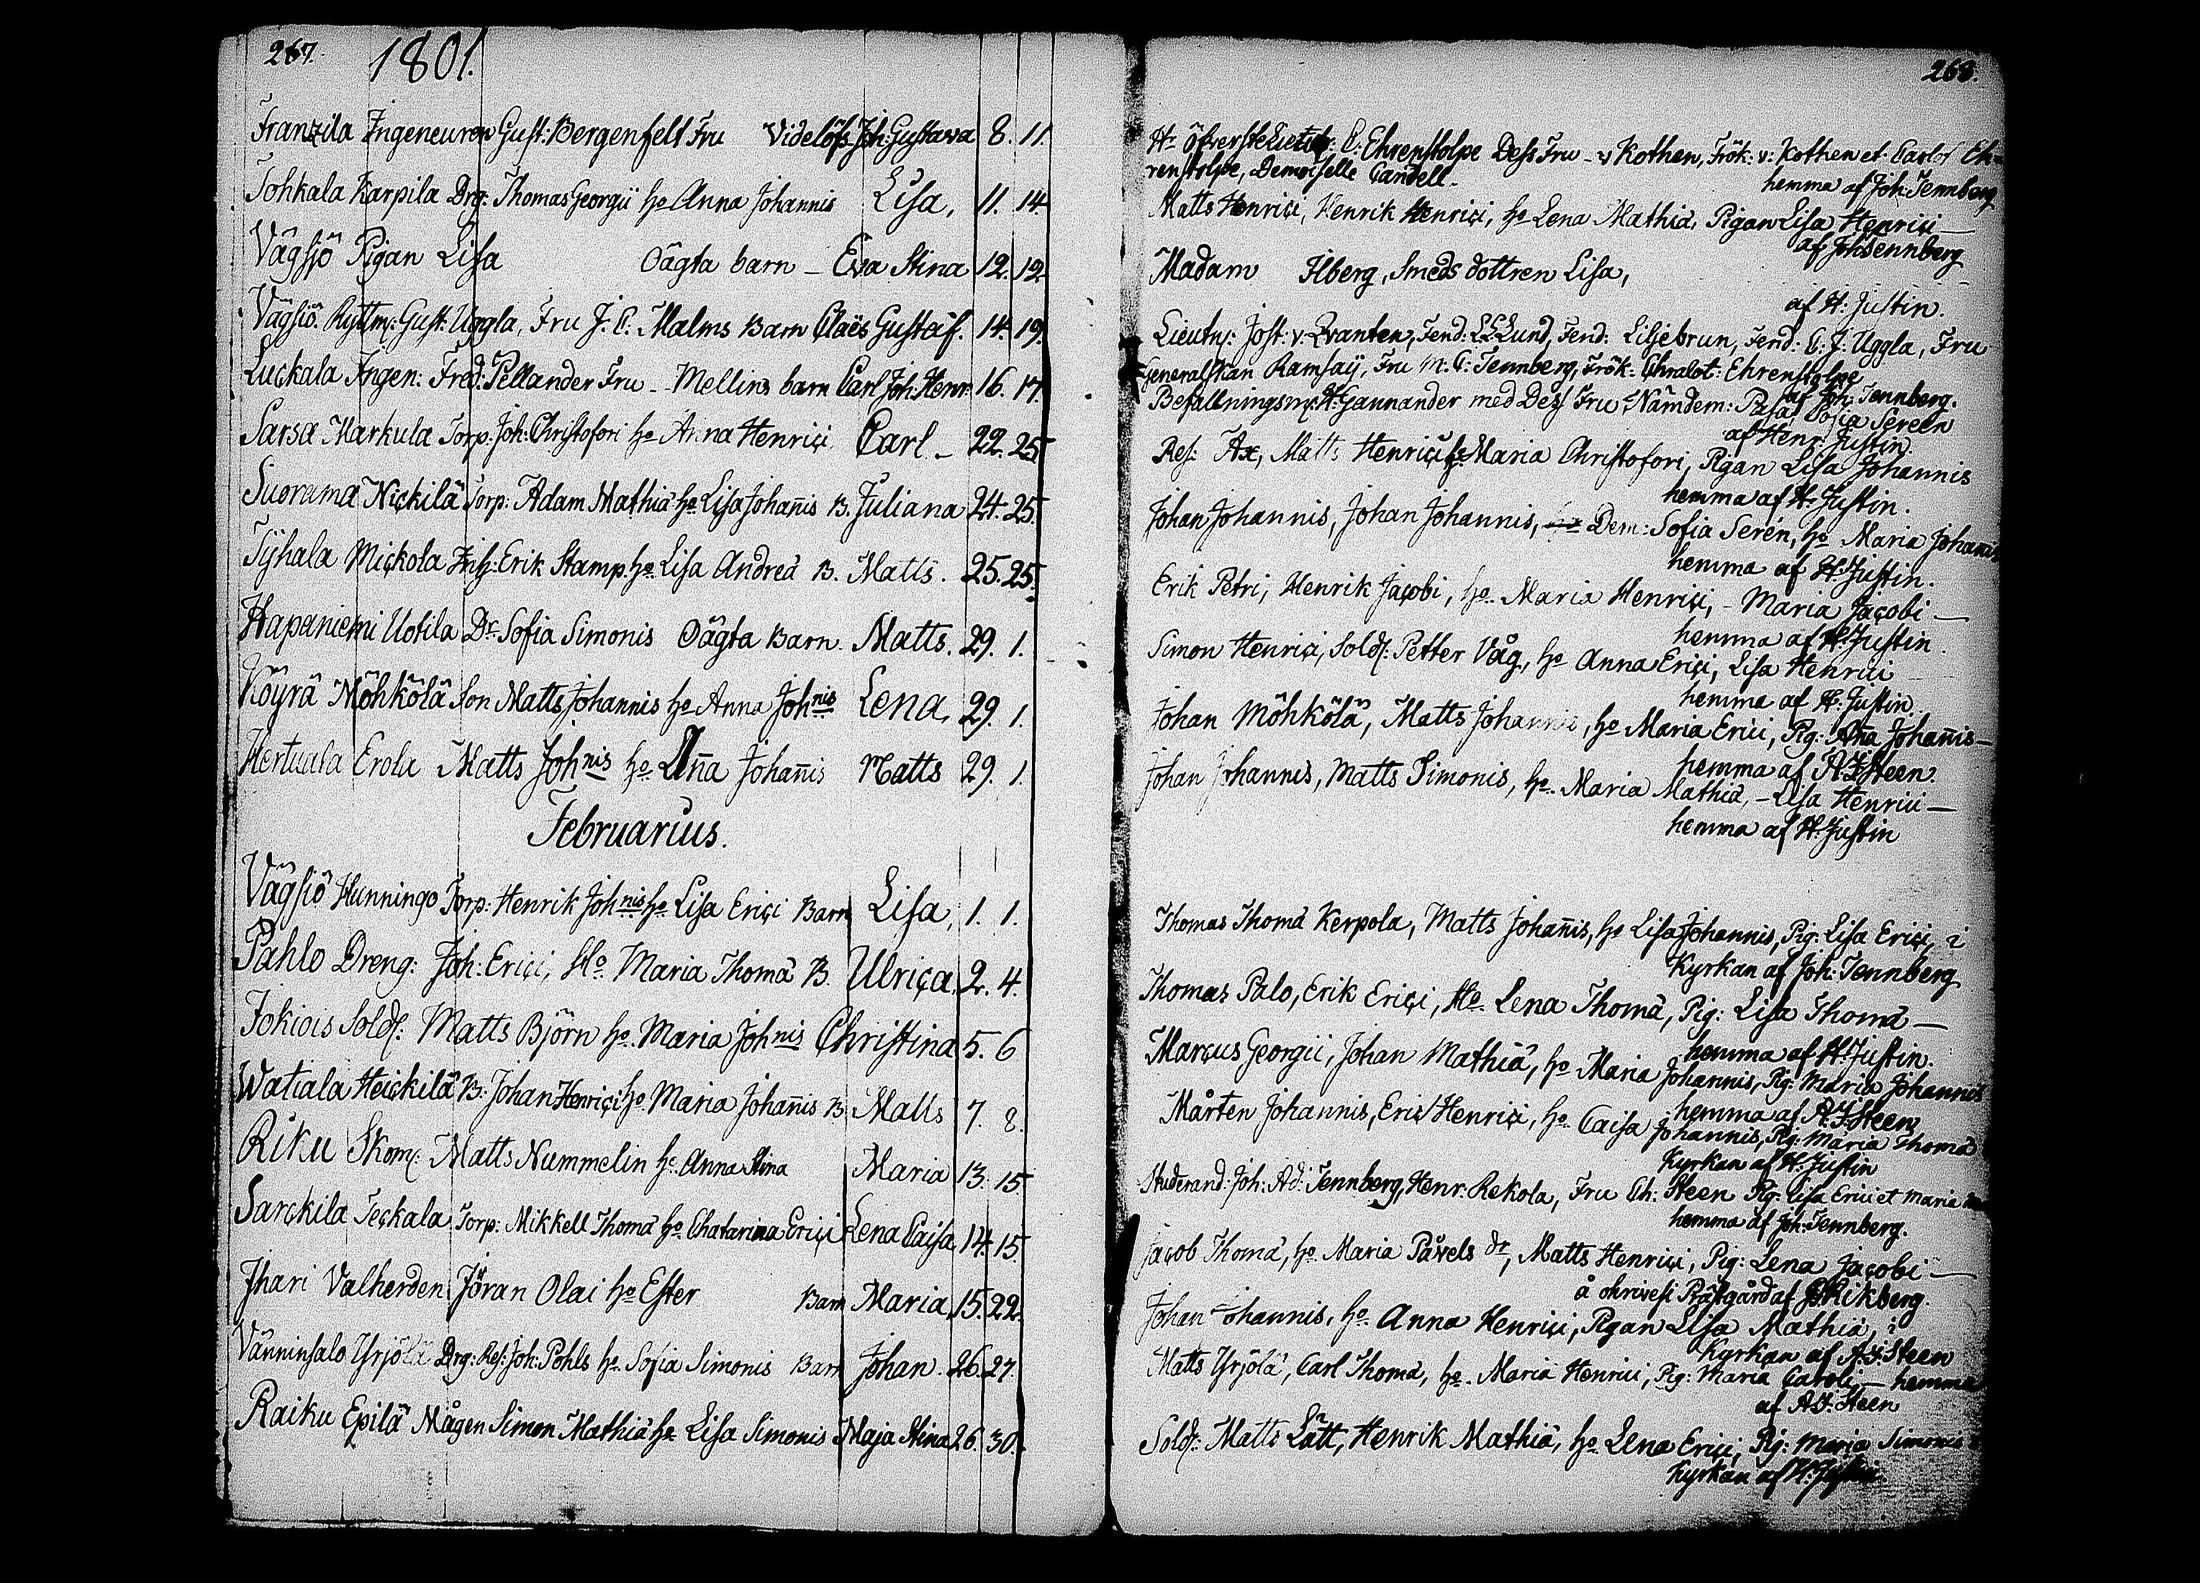 267. 1801.
Franzila Ingeneuren Gust: Bergenfelt Fru Videlöfs Joh: Gustava 8. 11.
Tohkala Karpila Drg: Thomas Georgii ho Anna Johannis Lisa, 11. 14.
Vägsjö Pigan Lisa Oägta barn – Eva Stina 12. 12.
Vägsjö. Ryttm: Gust: Uggla, Fru J. C. Malms Barn Claës Gustaf. 14. 19.
Luckala Ingen: Fred: Pellander Fru – Mellins barn Carl Joh: Henr: 16. 17.
Sarsa Markula Torp: Joh: Christofori ho Anna Henrici Carl – 22. 25
Suorama Nickilä Torp: Adam Mathiä ho Lisa Johanis B. Juliana 24. 25.
Tyhala Mickola Erik Stamp ho Lisa Andreä B. Matts. 25. 25.
Hapaniemi Uotila Dr Sofia Simonis Oägta Barn. Matts. 29. 1.
Köyrä Möhkölä Son Matts Johannis ho Anna Johnis Lena, 29. 1.
Hertuala Erola Matts Johnis ho Anna Johanis Matts 29. 1.
Februarius.
Vägsiö Hunningo Torp: Henrik Johnis ho Lisa Erici Barn Lisa, 1. 1.
Pahlo Dreng: Joh: Erici, Ho Maria Thomä B. Ulrica. 2. 4.
Jokiois Sold: Matts Björn ho Maria Johnis Christina 5. 6
Watiala Heickilä B: Johan Henrici ho Maria Johanis B. Matts 7. 8.
Riku Skom: Matts Nummelin ho Anna Stina Maria 13. 15.
Sarckila Teckala Torp: Mikkell Thomä ho Chatarina Erici Lena Caisa 14. 15.
Ihari Valherden Jöran Olai ho Ester Barn Maria, 15. 22.
Vänninsalo Yrjölä Drg: Res: Joh: Pohls ho Sofia Simonis Barn Johan. 26. 27.
Raiku Epilä Mågen Simon Mathiä ho Lisa Simonis Maja Stina 26. 30.
268.
Hr Öfverste C. Ehrenstolpe Dess Fru – v Kothen, Frök: v: Kothen et Carlof Eh-
renstolpe, Demoiselle Candell.
hemma af Joh: Tennberg
Matts Henrici, Henrik Henrici, ho Lena Mathiä, Pigan Lisa Henrici –
af Joh Tennberg
Madam Ilberg, Smeds dottren Lisa,
af H: Justin.
Lieutn: Jost: v: Qvanten, Fend: Lund, Fend: Liljebrun, Fend: C. J. Uggla, Fru
Generalskan Ramsaÿ, Fru M. C: Tennberg, Frök: Ehrenstolpe
af Joh: Tennberg.
Befallningsm: Hr Gaunander med Dess Fru Nämdem: Sofia Sereen
af Henr: Justin
Res: Ax, Matts Henrici ho Maria Christofori, Pigan Lisa Johannis
hemma af H: Justin.
Johan Johannis, Johan Johannis, Dem: Sofia Serén, ho Maria Johanis
hemma af H: Justin.
Erik Petri, Henrik Jacobi, ho Maria Henrici, – Maria Jacobi –
hemma af H: Justin.
Simon Henrici, Sold: Petter Våg, ho Anna Erici, Lisa Henrici
hemma af H: Justin.
Johan Möhkölä, Matts Johannis, ho Maria Erici, Pig: Ana Johanis –
hemma af A. J. Steen.
Johan Johannis, Matts Simonis, ho Maria Mathiä, – Lisa Henrici –
hemma af H: Justin
Thomas Thomä Kerpola, Matts Johanis, ho Lisa Johannis, Pig: Lisa Erici, i
Kyrkan af Joh: Tennberg
Thomas Palo, Erik Erici, Ho Lena Thomä, Pig: Lisa Thomä –
hemma af H: Justin.
Marcus Georgii, Johan Mathiä, ho Maria Johannis, Pig: Maria Johannis
hemma af A. J. Steen
Mårten Johannis, Eric Henrici, ho Caisa Johannis, Pig: Maria Thomä
Kyrkan af H: Justin
Studerand: Joh: Ad: Tennberg, Henr: Rekola, Fru Ch: Steen Pig: Lisa Erici et Maria
hemma af Joh: Tennberg.
Jacob Thomä, ho Maria Påvels dr, Matts Henrici, Pig: Lena Jacobi –
å Prästgård af Rikberg.
Johan Johannis, ho Anna Henrici, Pigan Lisa Mathiä, i
Kyrkan af A. J. Steen
Matts Yrjölä, Carl Thomä, ho Maria Henrici, Pig: Maria Caroli – hemma
af A. J. Steen
Sold: Matts Lätt, Henrik Mathiä, ho Lena Erici, Pig: Maria Simonis
Kyrkan af H: Justin.